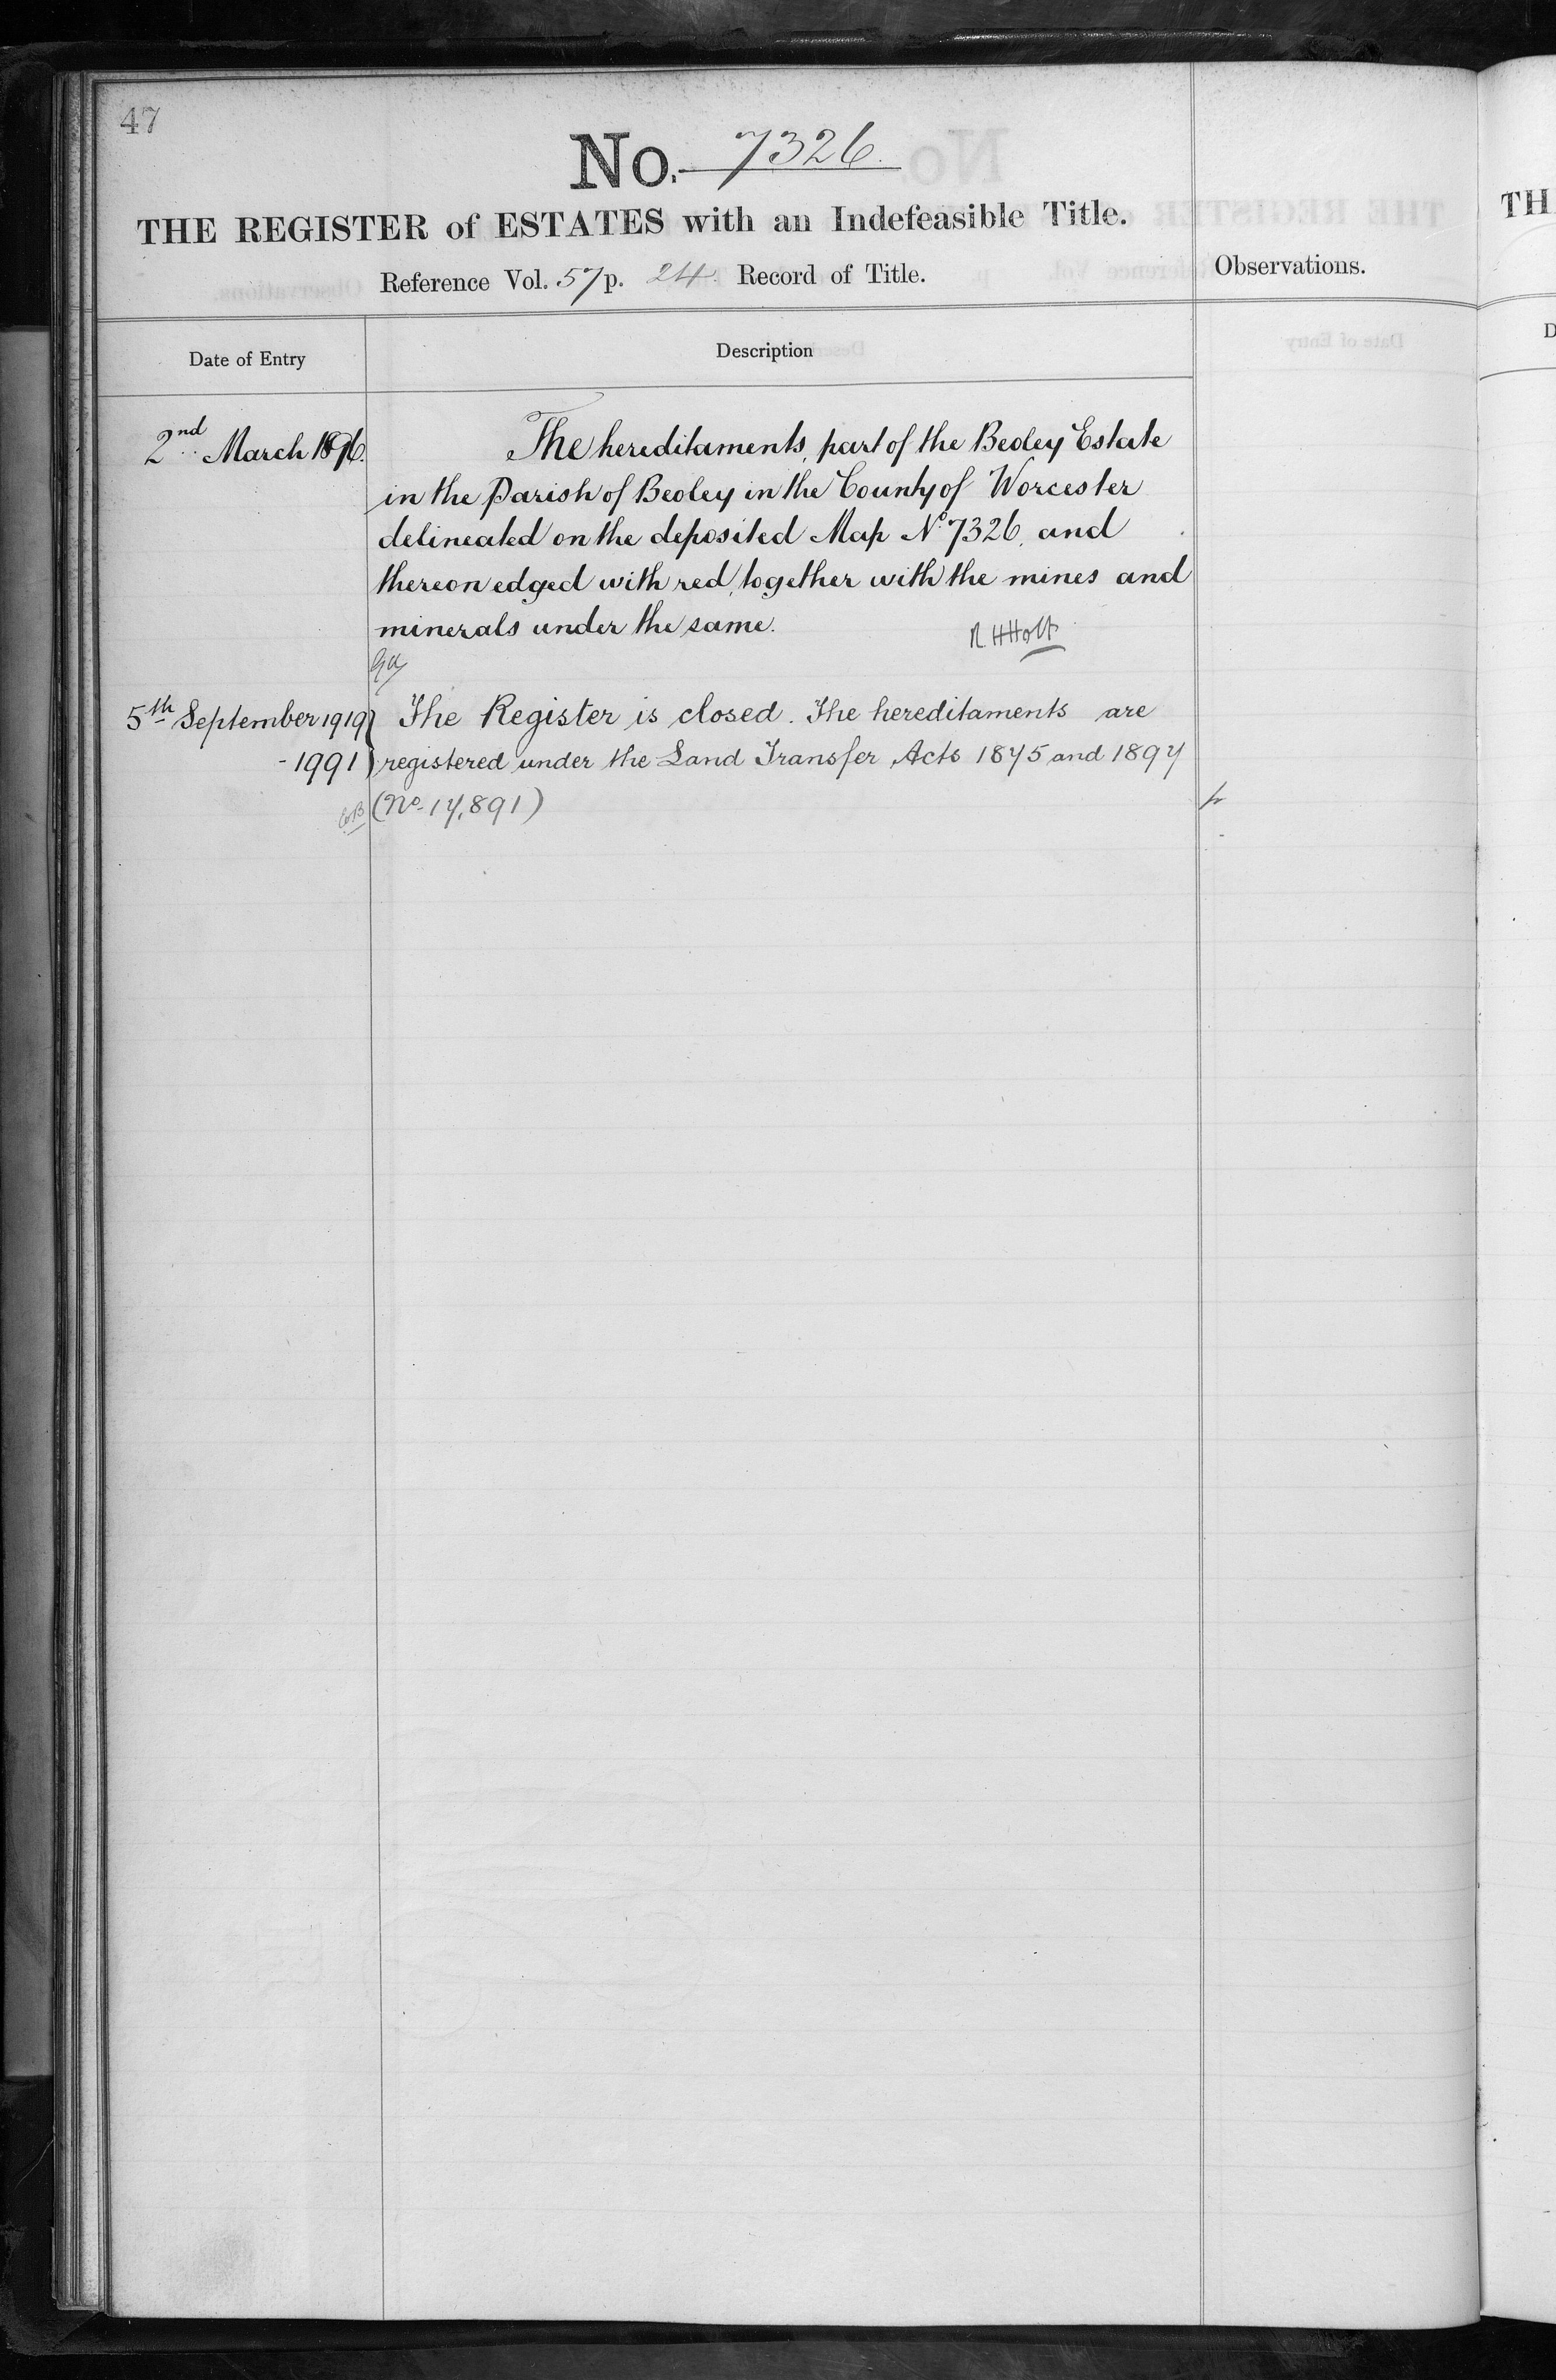 47
No. 7326.
THE REGISTER of ESTATES with an Indefeasible Title.
Reference Vol. 57 p. 24. Record of Title.
Observations.
Date of Entry
Description
2nd March 1896.
The hereditaments, part of the Beoley Estate
in the Parish of Beoley in the County of Worcester
delineated on the deposited Map No. 7326, and
thereon edged with red, together with the mines and
minerals under the same.
R H Holt
5th September 1919
The Register is closed. The hereditaments are
-1991
registered under the Land Transfer Acts 1875 and 1897
(No. 17,891)
TH
D